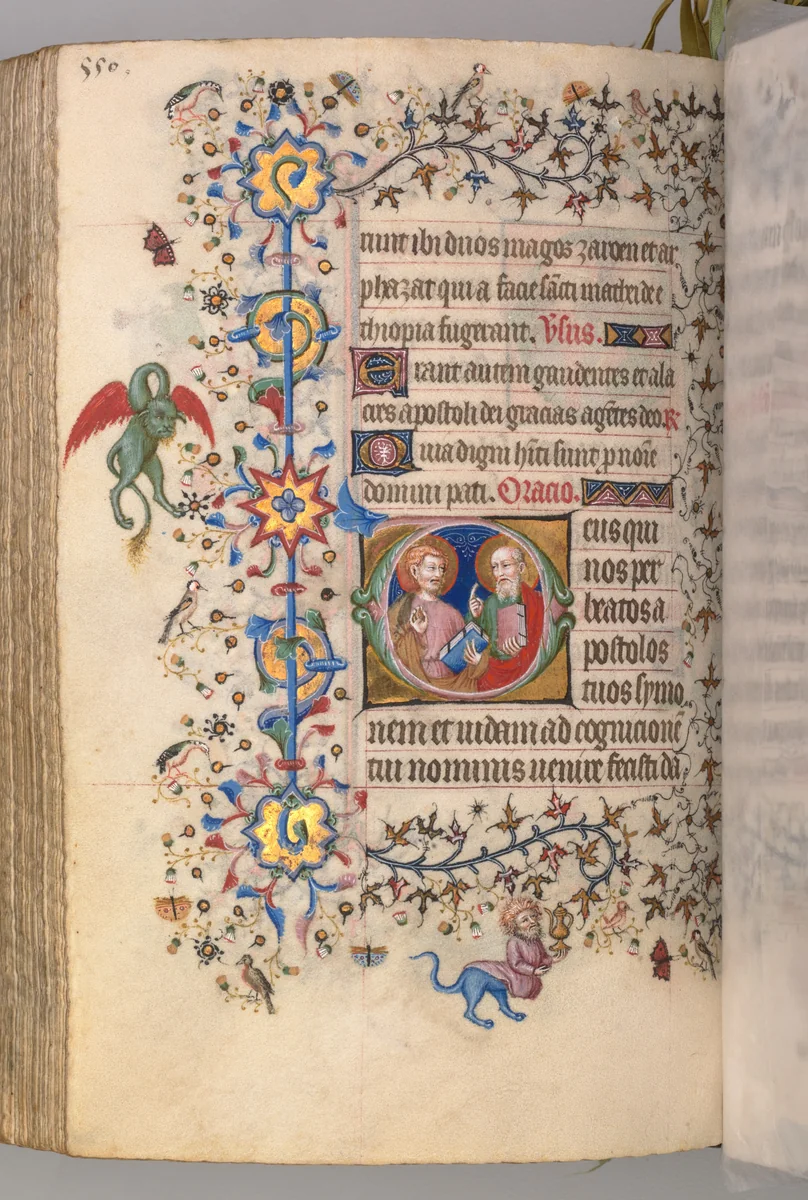 550.
runt ibi duos magos zaroen et ar
phazat qui a facie sāti mathei de e
thiopia fugerant. Vsus.
Erant autem gaudentes et ala
cres apostoli dei gracias agētes deo R
Quia digni hīti sunt p noīe
domini pati. Oracio.
Deus qui
nos per
beatos a
postolos
tuos symo
nem et iudam ad cognicionē
tui nominis uenire fecisti da